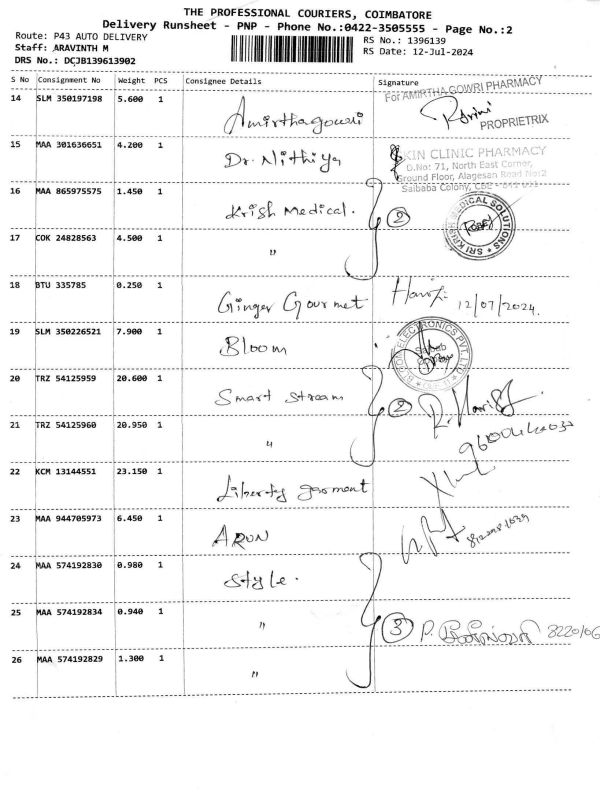 THE PROFESSIONAL COURIERS, COIMBATORE
Delivery Runsheet - PNP - Phone No.:0422-3505555 - Page No.:2
Route: P43 AUTO DELIVERY
RS No.: 1396139
Staff: ARAVINTH M
RS Date: 12-Jul-2024
DRS No.: DCJB139613902
S No Consignment No Weight PCS Consignee Details Signature
14 SLM 350197198 5.600 1 Amirthagowri For AMIRTHA GOWRI PHARMACY
PROPRIETRIX
15 MAA 301636651 4.200 1 Dr. Nithiya SKIN CLINIC PHARMACY
D.No: 71, North East Corner,
Ground Floor, Alagesan Road No:2
Saibaba Colony, CBE - 641 011
16 MAA 865975575 1.450 1 Krish Medical. 2 SRI KRISH MEDICAL SOLUTIONS
17 COK 24828563 4.500 1 "
18 BTU 335785 0.250 1 Ginger Gourmet 12/07/2024.
19 SLM 350226521 7.900 1 Bloom ELECTRONICS PVT. LTD
20 TRZ 54125959 20.600 1 Smart Stream 2
21 TRZ 54125960 20.950 1 "
22 KCM 13144551 23.150 1 Liberty garment
23 MAA 944705973 6.450 1 ARUN
24 MAA 574192830 0.980 1 Style.
25 MAA 574192834 0.940 1 " 3 P.
26 MAA 574192829 1.300 1 "